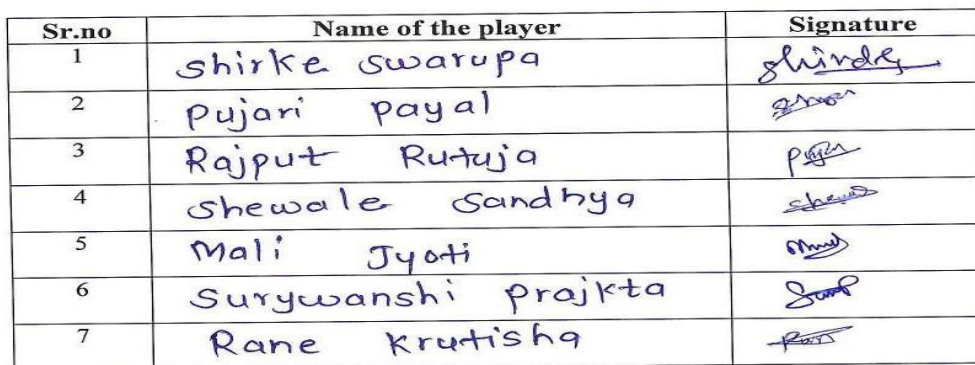 Sr.no Name of the player Signature
1 Shirke Swarupa Shinde
2 Pujari Payal
3 Rajput Rutuja
4 Shewale Sandhya
5 Mali Jyoti
6 Surywanshi Prajkta
7 Rane Krutisha